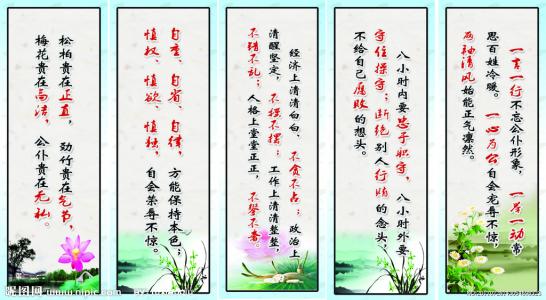 松柏贵在正直，劲竹贵在气节，
梅花贵在高洁，公仆贵在无私。
自重、自省、自律，方能保持本色；
慎权、慎欲、慎独，自会荣辱不惊。
经济上清清白白，不贪不占；政治上
清醒坚定，不摇不摆；工作上清清整整，
不错不乱；人格上堂堂正正，不攀不奢。
八小时内要忠于职守，八小时外要
守住操守；断绝别人行贿的念头，
不给自己腐败的想头。
一言一行不忘公仆形象，一举一动常
思百姓冷暖。一心为公自会宠辱不惊，
两袖清风始能正气凛然。
昵图网